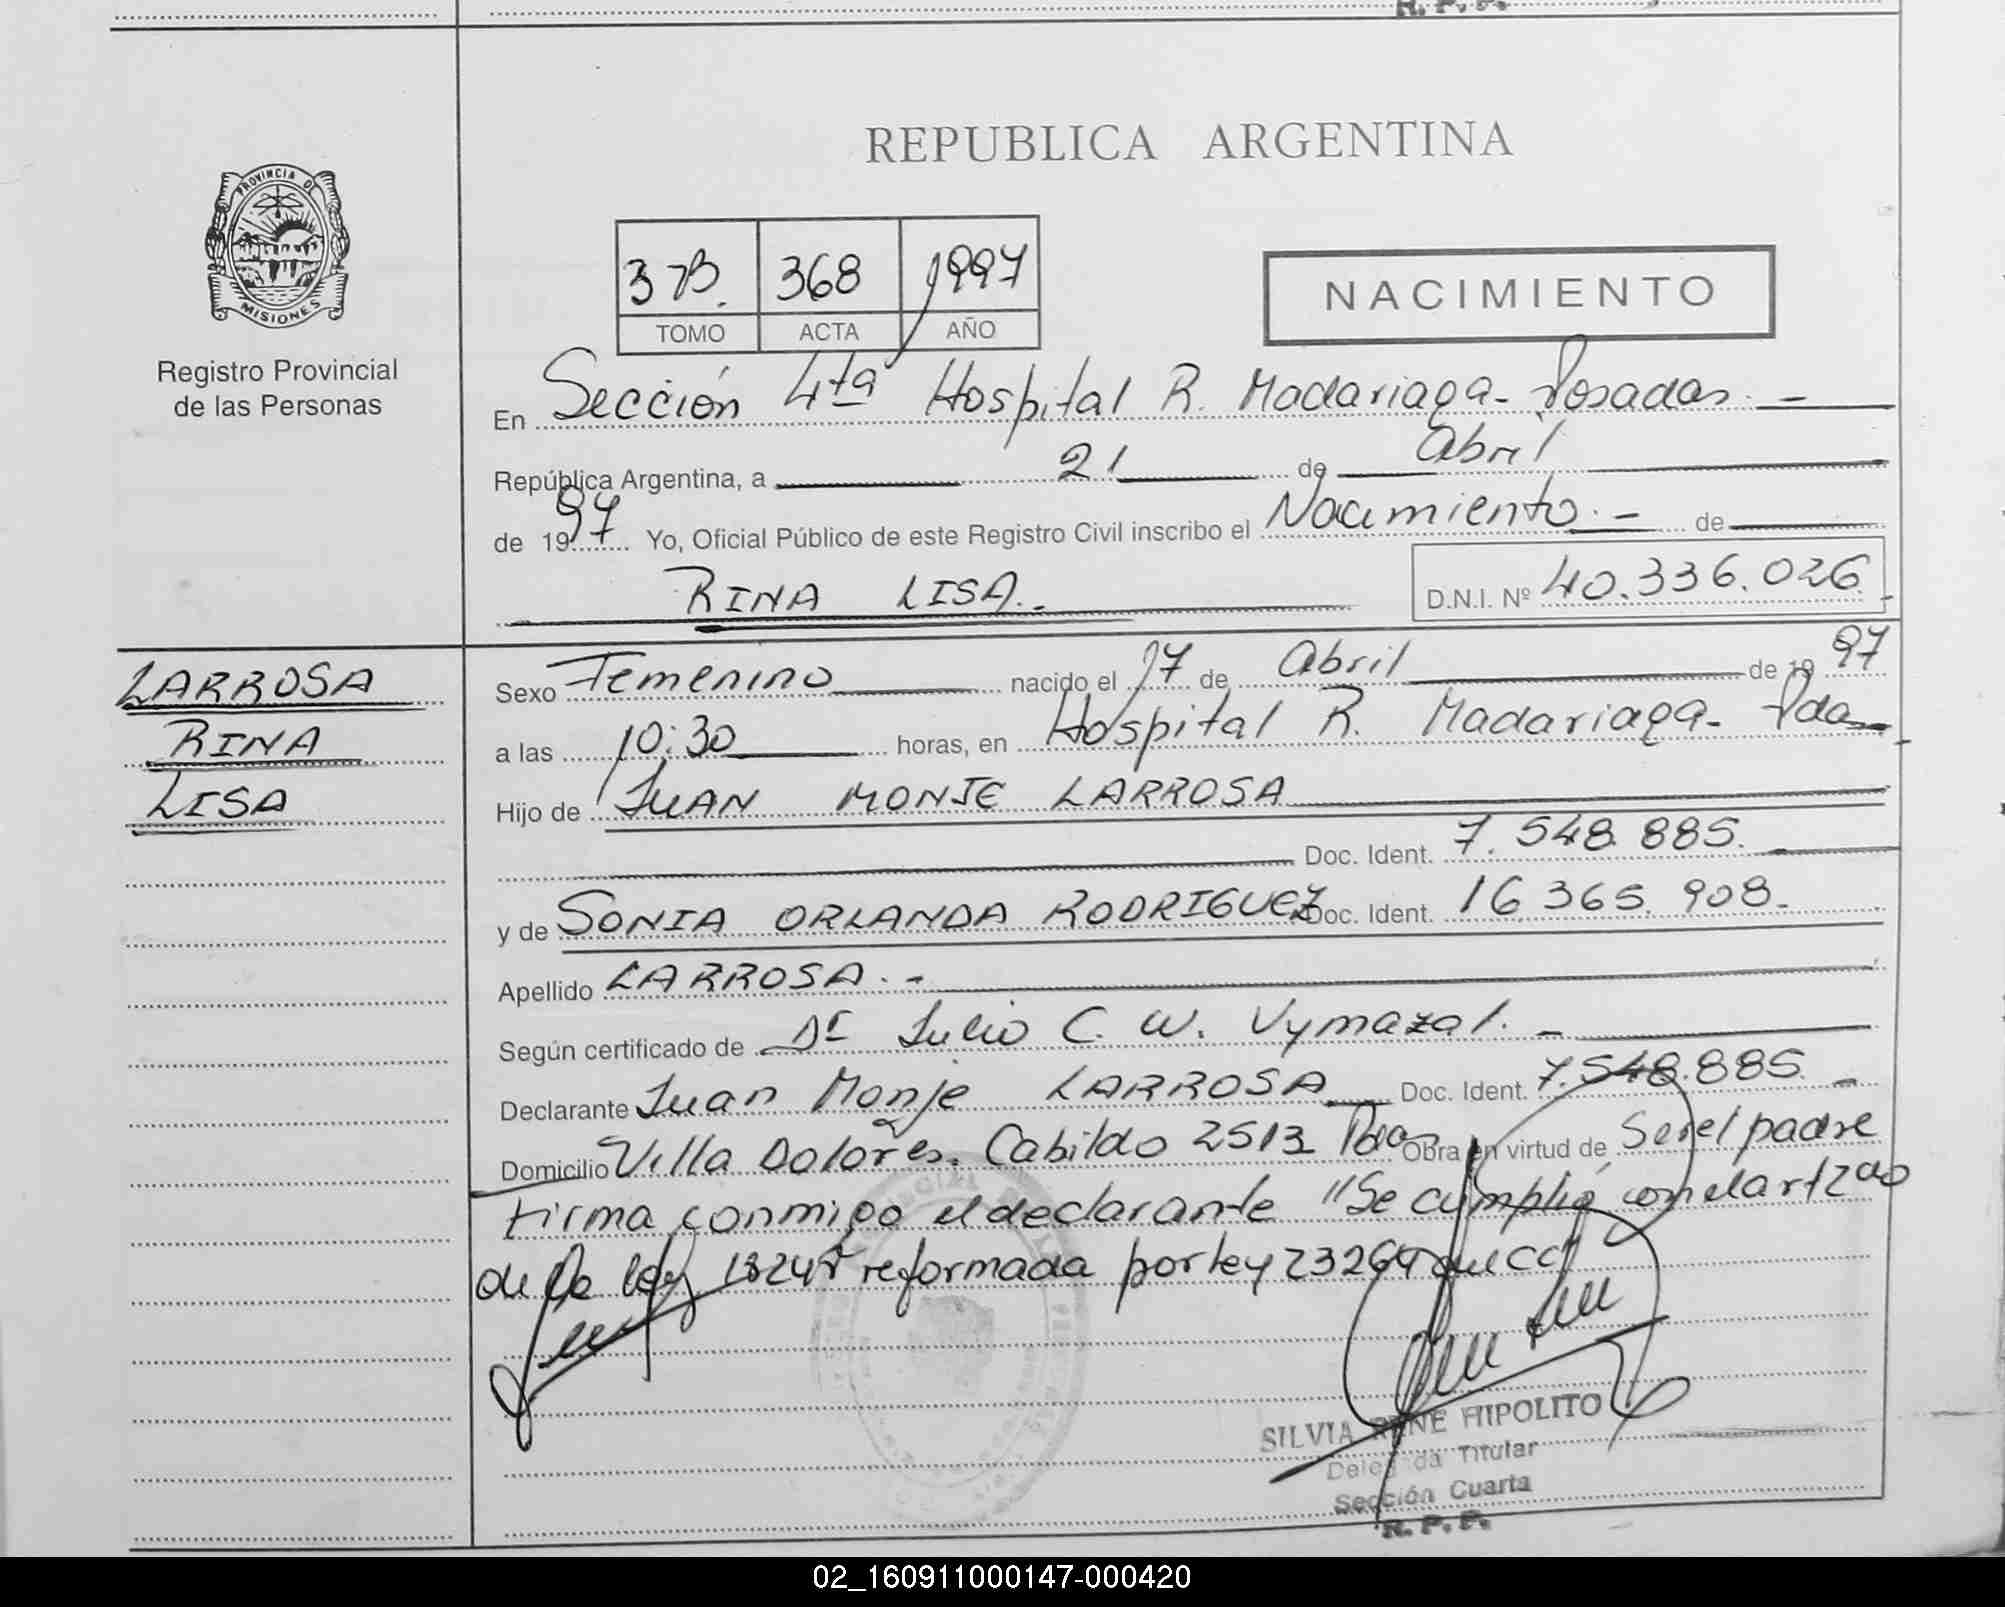 R. P. P.
REPUBLICA ARGENTINA
PROVINCIA DE
MISIONES
Registro Provincial
de las Personas
3 B. 368 1997
TOMO ACTA AÑO
NACIMIENTO
En Sección 4ta Hospital R. Madariaga - Posadas. -
República Argentina, a 21 de Abril
de 1997 Yo, Oficial Público de este Registro Civil inscribo el Nacimiento. - de
RINA LISA. - D.N.I. Nº 40.336.026
LARROSA
RINA
LISA
Sexo Femenino nacido el 17 de Abril de 1997
a las 10:30 horas, en Hospital R. Madariaga - Pdas
Hijo de JUAN MONJE LARROSA
Doc. Ident. 7. 548. 885.
y de SONIA ORLANDA RODRIGUEZ Doc. Ident. 16 365. 908.
Apellido LARROSA. -
Según certificado de Dr Julio C. W. Vymazal. -
Declarante Juan Monje LARROSA Doc. Ident. 7.548.885. -
Domicilio Villa Dolores. Cabildo 2513 Pdas Obra en virtud de Ser el padre
Firma conmigo el declarante "Se cumplió con el art 2do
de la ley 18247 reformada por ley 23264 del CC"
SILVIA RENE HIPOLITO
Delegada Titular
Sección Cuarta
R. P. P.
02_160911000147-000420